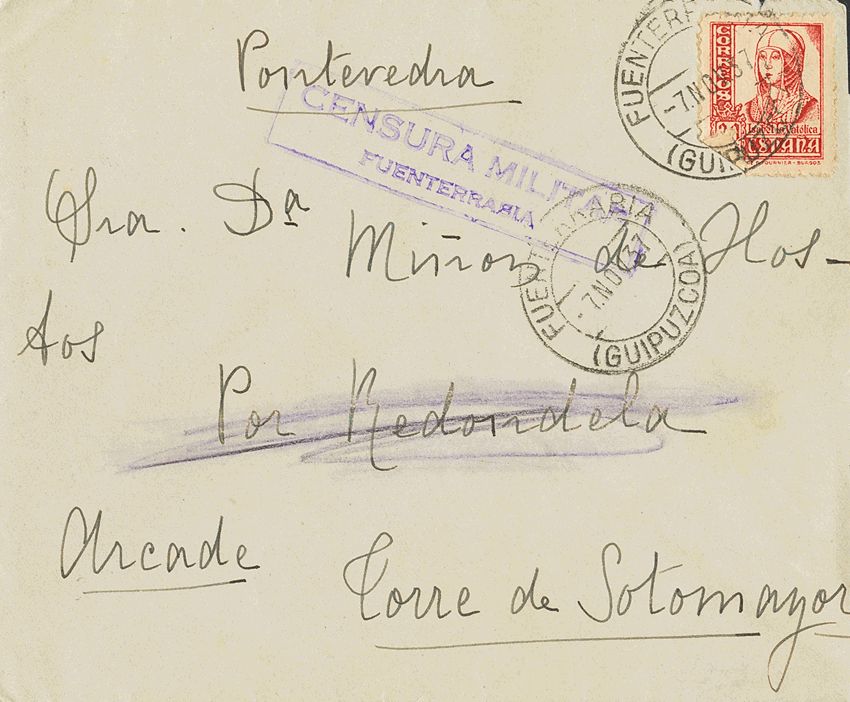 Pontevedra
CENSURA MILITAR
FUENTERRABIA
FUENTERRABIA
-7.NOV.37
(GUIPUZCOA)
CORREOS
Isabel la Católica
ESPAÑA
FOURNIER-BURGOS
Sra. Dª
Miñon de Hos-
tos
FUENTERRABIA
-7.NOV.37
(GUIPUZCOA)
Por Redondela
Arcade
Torre de Sotomayor